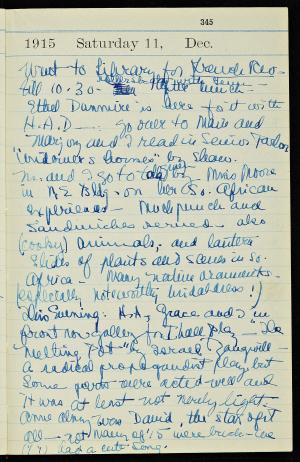 345
1915 Saturday 11, Dec.
Went to Library for French Rev-
till 10.30-
Ethel Dunmire is here for it with
H.A.D - go over to Main and
Marjory and I read in Senior Parlor
"Widower's houses" by Shaw.
M. and I go to by Miss Moore
in N.E. Bldg. on her So. African
experience - Much punch and
sandwiches served - also
(cooky) animals, and lantern
slides of plants and scenes in So.
Africa - Many native ornaments -
(especially noteworthy bridal dress!)
This evening: H.A, Grace and I in
front row gallery for Thall Play - The
Melting Pot - by Israel Zangwill -
a radical propagandist play, but
some parts were acted well and
it was at least not nerdy light.
was David, the star of it
all - not many of '15 were back -
had a cute song.